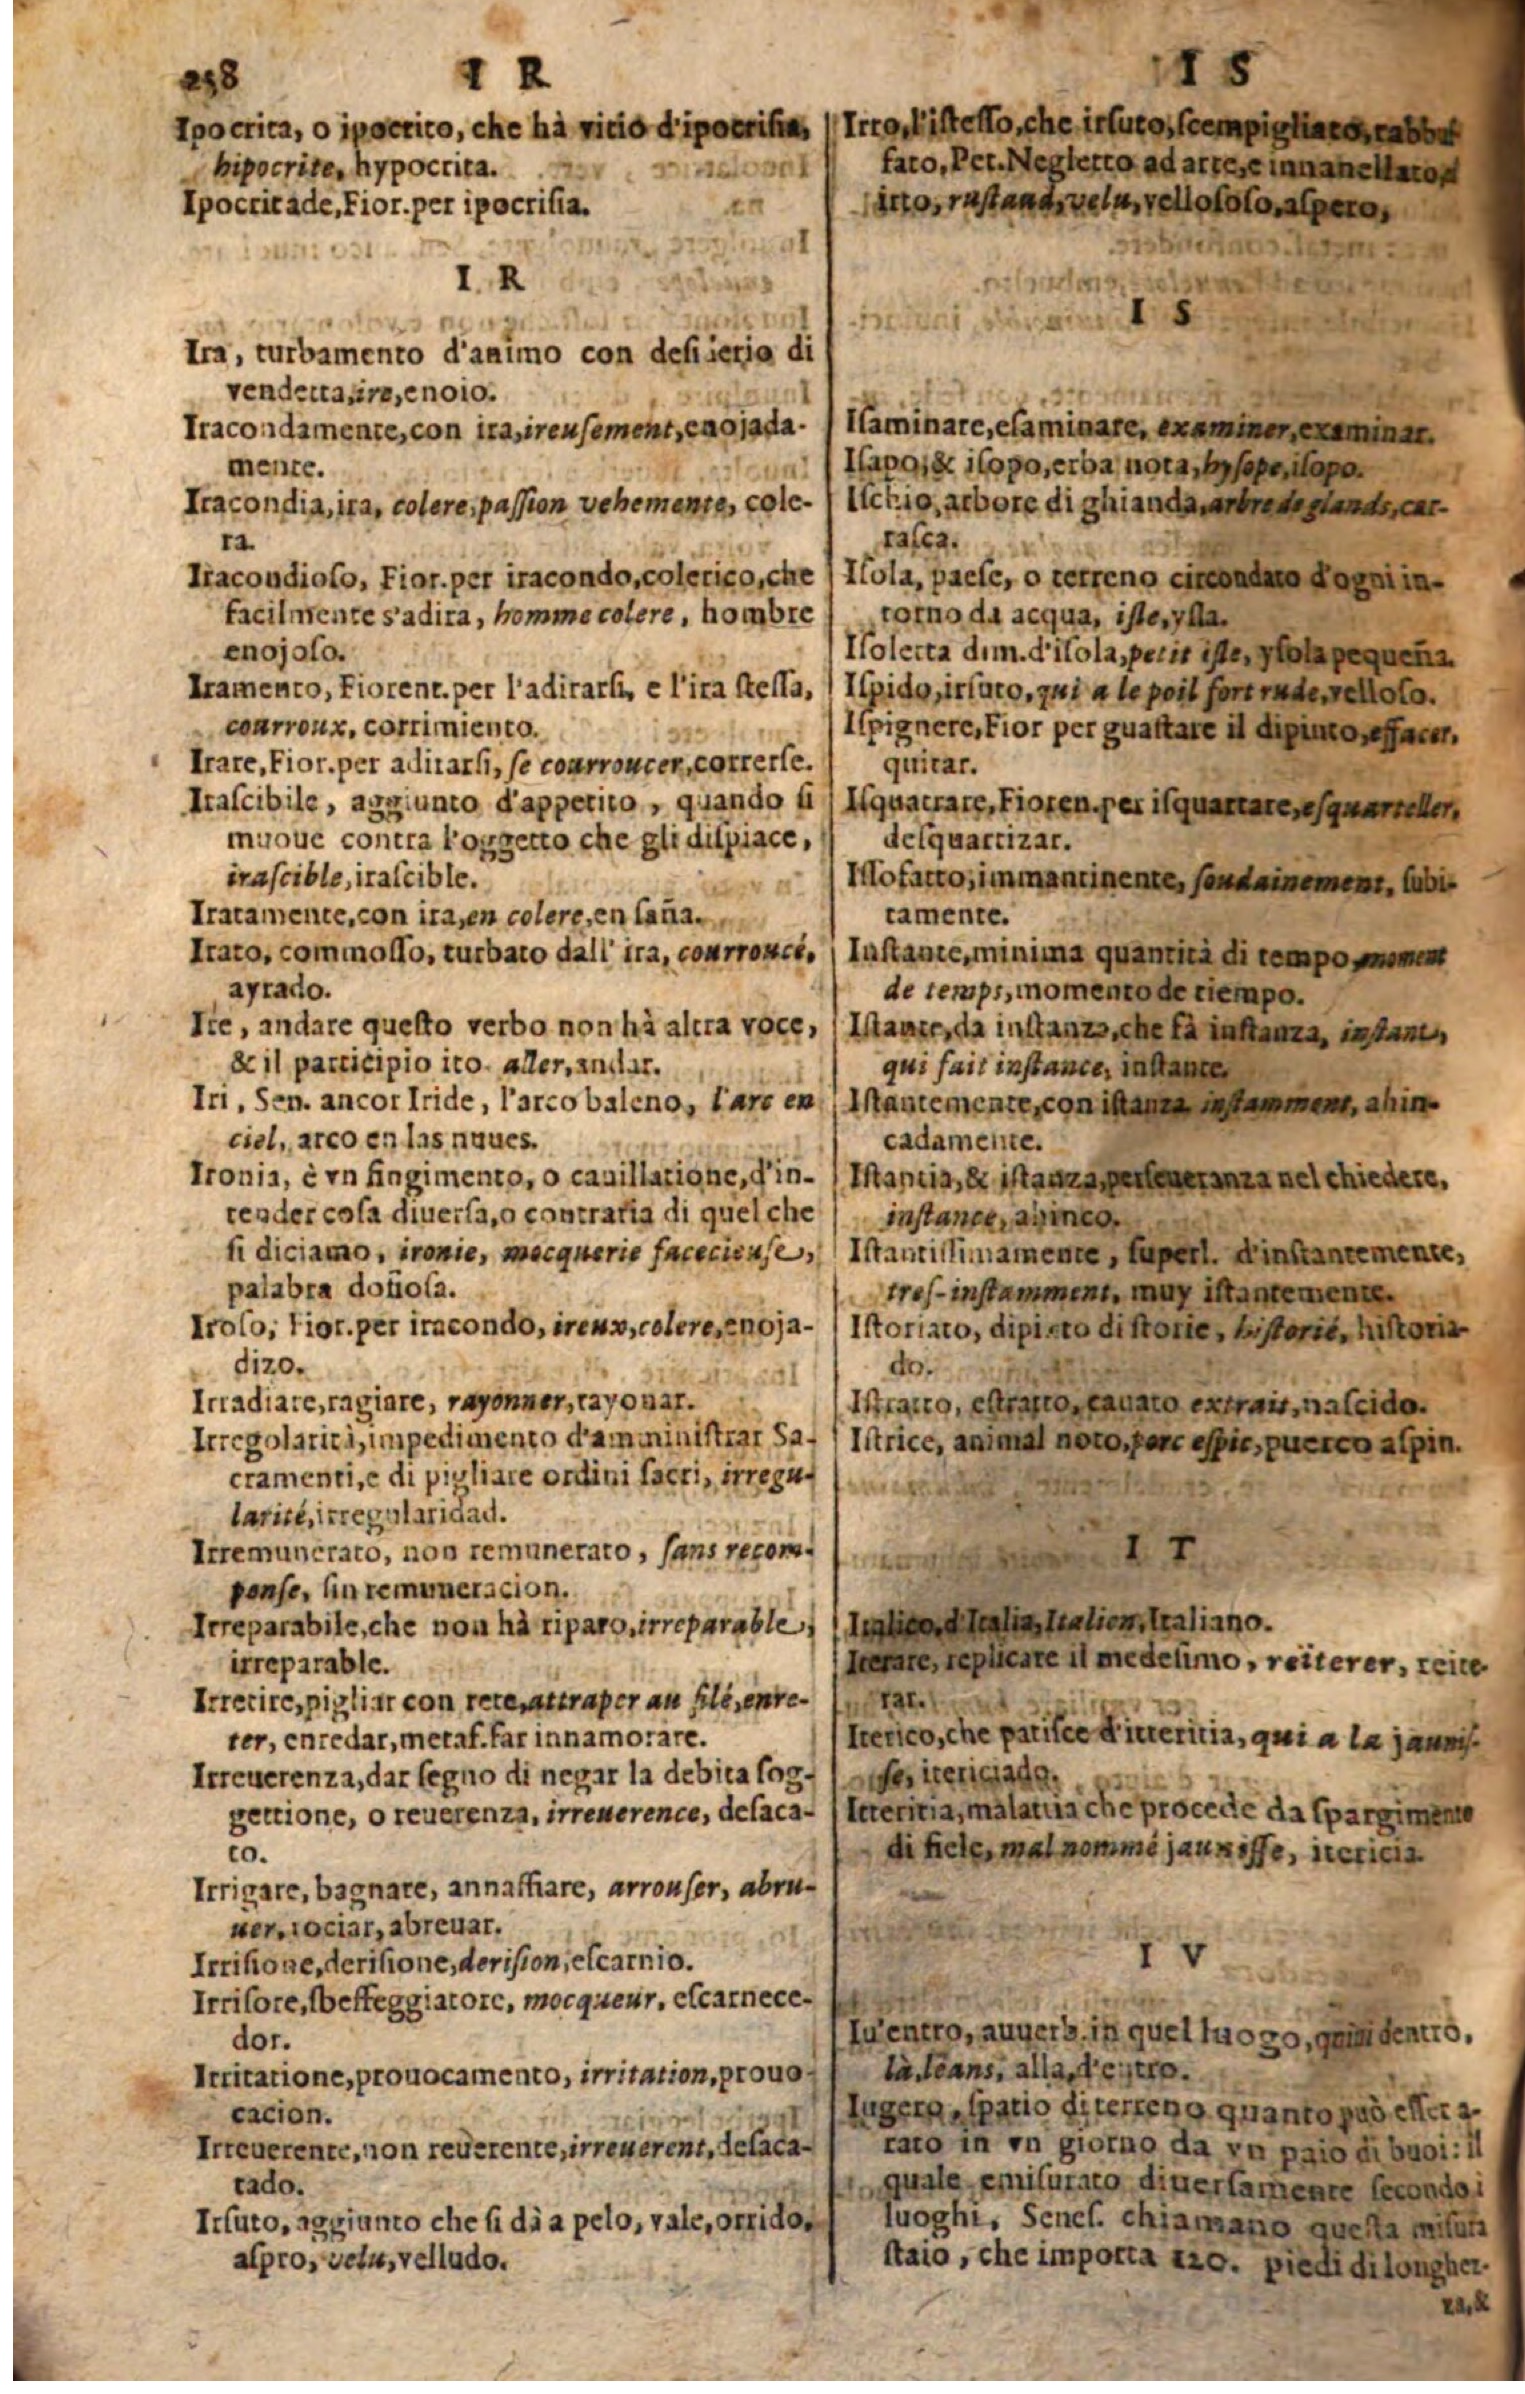 258 I R
Ipocrita, o ipocrito, che hà vitio d'ipocrisia,
hipocrite, hypocrita.
Ipocritade,Fior.per ipocriſia.
I R
Ira, turbamento d'animo con deſiderio di
vendetta,ire,enoio.
Iracondamente,con ira,ireuſement,enojada-
mente.
Iracondia,ira, colere,paſſion vehemente, cole-
ra.
Iracondioſo, Fior.per iracondo,colerico,che
facilmente s'adira, homme colere, hombre
enojoſo.
Iramento, Fiorent.per l'adirarſi, e l'ira ſteſſa,
courroux, corrimiento.
Irare,Fior.per adirarſi, ſe courroucer,correrſe.
Iraſcibile, aggiunto d'appetito, quando ſi
muoue contra l'oggetto che gli diſpiace,
iraſcible,iraſcible.
Iratamente,con ira,en colere,en ſaña.
Irato, commoſſo, turbato dall' ira, courroucé,
ayrado.
Ire, andare queſto verbo non hà altra voce,
& il participio ito. aller,andar.
Iri, Sen. ancor Iride, l'arco baleno, l'arc en
ciel, arco en las nuues.
Ironia, è vn fingimento, o cauillatione,d'in-
tender coſa diuerſa,o contraria di quel che
ſi diciamo, ironie, mocquerie facecieuſe,
palabra doñoſa.
Iroſo, Fior.per iracondo, ireux,colere,enoja-
dizo.
Irradiare,ragiare, rayonner,rayonar.
Irregolarità,impedimento d'amminiſtrar Sa-
cramenti,e di pigliare ordini ſacri, irregu-
larité,irregularidad.
Irremunerato, non remunerato, ſans recom-
penſe, ſin remuneracion.
Irreparabile,che non hà riparo,irreparable,
irreparable.
Irretire,pigliar con rete,attraper au filé,enre-
ter, enredar,metaf.far innamorare.
Irreuerenza,dar ſegno di negar la debita ſog-
gettione, o reuerenza, irreuerence, deſaca-
to.
Irrigare, bagnare, annaffiare, arrouſer, abru-
uer,rociar,abreuar.
Irriſione,deriſione,deriſion,eſcarnio.
Irriſore,ſbeffeggiatore, mocqueur, eſcarnece-
dor.
Irritatione,prouocamento, irritation,prouo-
cacion.
Irreuerente,non reuerente,irreuerent,deſaca-
tado.
Irſuto, aggiunto che ſi dà a pelo, vale,orrido,
aſpro, velu,velludo.
I S
Irto,l'iſteſſo,che irſuto,ſcempigliato,rabbuf
fato,Pet.Negletto ad arte,e innanellato,
irto, ruſtaud,velu,velloſoſo,aſpero,
I S
Iſaminare,eſaminare, examiner,examinar.
Iſapo,& iſopo,erba nota,hyſope,iſopo.
Iſchio,arbore di ghianda,arbre de glands,car-
raſca.
Iſola, paeſe, o terreno circondato d'ogni in-
torno da acqua, iſle,yſla.
Iſoletta dim.d'iſola,petit iſle, yſola pequeña.
Iſpido,irſuto,qui a le poil fort rude,velloſo.
Iſpignere,Fior per guaſtare il dipinto,effacer,
quitar.
Iſquatrare,Fioren.per iſquartare,eſquarteller,
deſquartizar.
Iſſofatto,immantinente, ſoudainement, ſubi-
tamente.
Inſtante,minima quantità di tempo,moment
de temps,momento de tiempo.
Iſtante,da inſtanza,che fà inſtanza, inſtant,
qui fait inſtance, inſtante.
Iſtantemente,con iſtanza inſtamment, ahin-
cadamente.
Iſtantia,& iſtanza,perſeueranza nel chiedere,
inſtance, ahinco.
Iſtantiſſimamente, ſuperl. d'inſtantemente,
tres-inſtamment, muy iſtantemente.
Iſtoriato, dipinto di ſtorie, hiſtorié, hiſtoria-
do.
Iſtratto, eſtratto, cauato extrait,naſcido.
Iſtrice, animal noto,porc eſpic,puerco aſpin.
I T
Italico,d'Italia,Italien,Italiano.
Iterare, replicare il medeſimo, reïterer, reite-
rar.
Iterico,che patiſce d'itteritia, qui a la jauniſ-
ſe, itericiado.
Itteritia,malattia che procede da ſpargimento
di fiele, mal nommé jauniſſe, itericia.
I V
Iu'entro, auuerb.in quel luogo, quiui dentro,
là,léans, alla,d'entro.
Iugero, ſpatio di terreno quanto può eſſer a-
rato in vn giorno da vn paio di buoi: il
quale emiſurato diuerſamente ſecondo i
luoghi, Seneſ. chiamano queſta miſura
ſtaio, che importa 120. piedi di longhez-
za,&